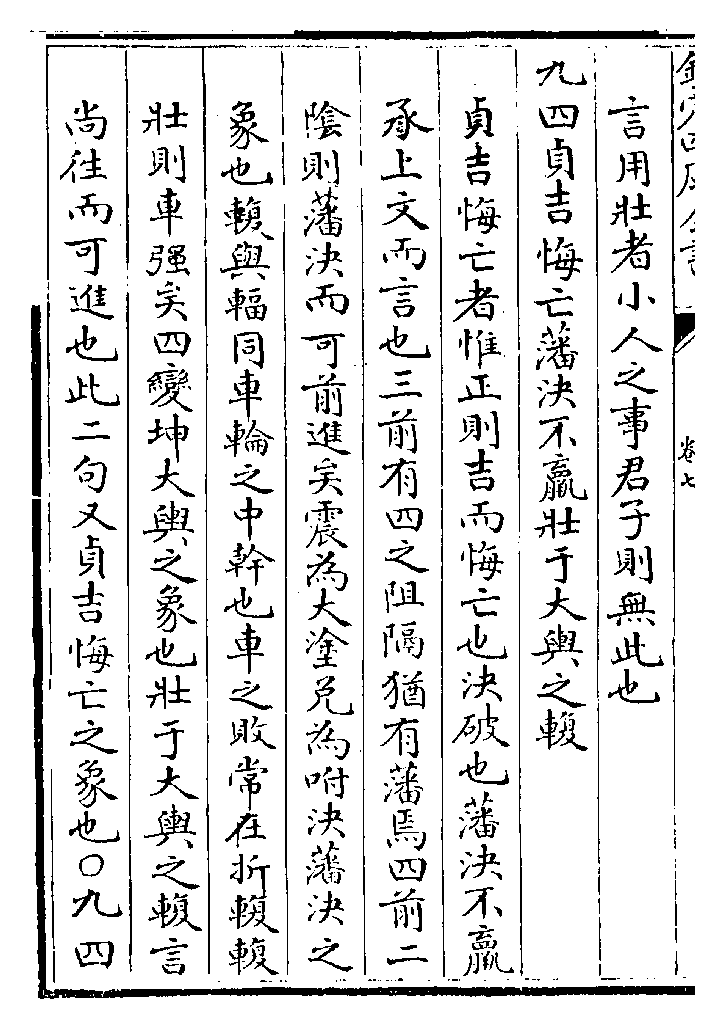 欽定四庫全書
卷七
言用壯者小人之事君子則無此也
九四貞吉悔亡藩決不羸壯于大輿之輹
貞吉悔亡者惟正則吉而悔亡也決破也藩決不羸
承上文而言也三前有四之阻隔猶有藩焉四前二
陰則藩決而可前進矣震為大塗兌為咐決藩決之
象也輹與輻同車輪之中幹也車之敗常在折輹輹
壯則車强矣四變坤大輿之象也壯于大輿之輹言
尚往而可進也此二句又貞吉悔亡之象也〇九四